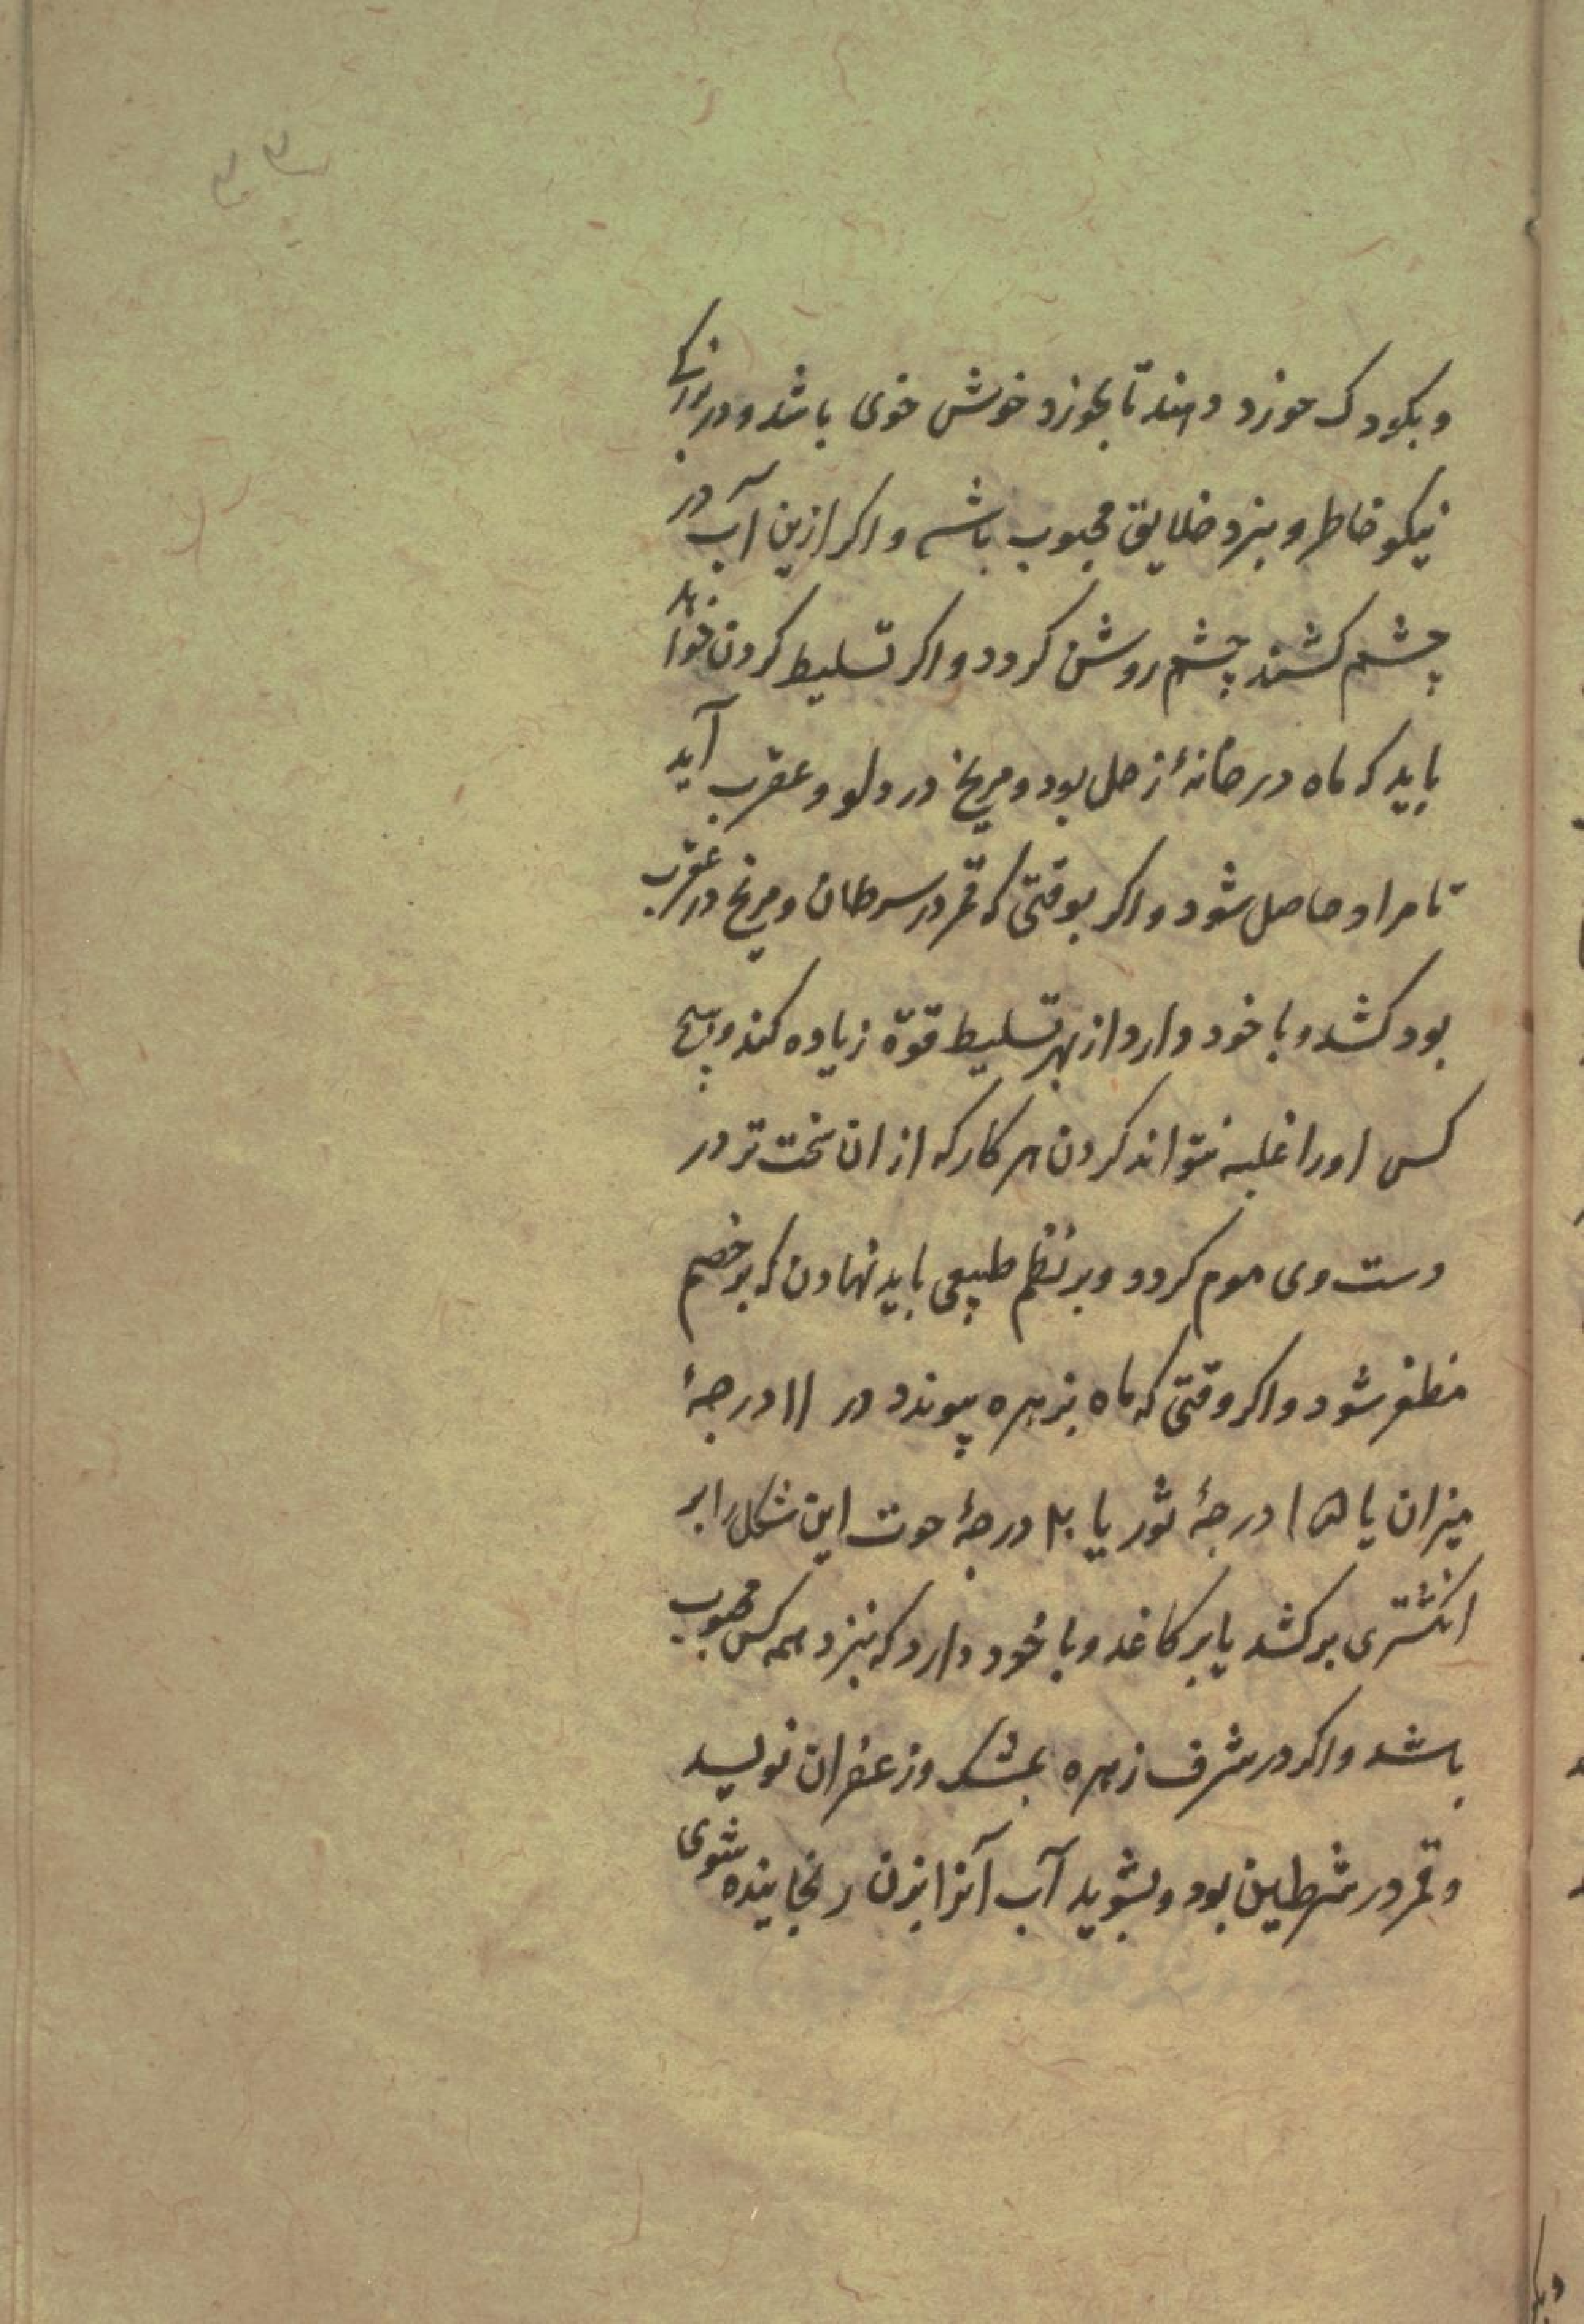 و بکودک خورد دهند تا بخورد خوش خوی باشد و در بزرکی
نیکو خاطر و بنزد خلایق محبوب باشد و اکر ازین آب در
چشم کشند چشم روشن کردد و اکر تسلیط کردن خواهد
باید که ماه در خانهٔ زحل بود و مریخ در دلو و عقرب آید
تا مراد حاصل شود و اکر بوقتی که قمر در سرطان و مریخ در عقرب
بود کشد و با خود دارد از بهر تسلیط قوّة زیاده کند و هیچ
کس او را غلبه نتواند کردن هر کار که از ان سخت تر در
دست وی موم کردد و بر نظم طبیعی باید نهادن که بر خصم
مظفر شود و اکر وقتی که ماه بزهره پیوندد در ۱۱ درجهٔ
میزان یا ۱۵ درجهٔ ثور یا درجهٔ حوت این شکل را بر
انکشتری بر کشد یا بر کاغد و با خود دارد که بنزد همه کس محبوب
باشد و اکر در شرف زهره بمشک و زعفران نویسد
و قمر در شرطین بود و بشوید آب آنرا بزن رنجاینده شوی